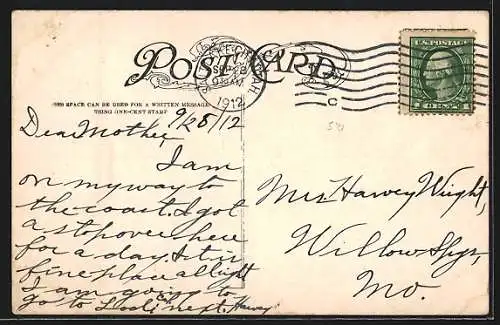 POST CARD
THIS SPACE CAN BE USED FOR A WRITTEN MESSAGE
USING ONE-CENT STAMP
1912
C
U.S. POSTAGE
541
9/28/12
Dear Mother,
I am
on my way to
the coast. I got
a stop over here
for a day. It is
fine place all right
I am going to
go to next. Harvey
Mrs Harvey Wright,
Willow Spgs,
Mo.